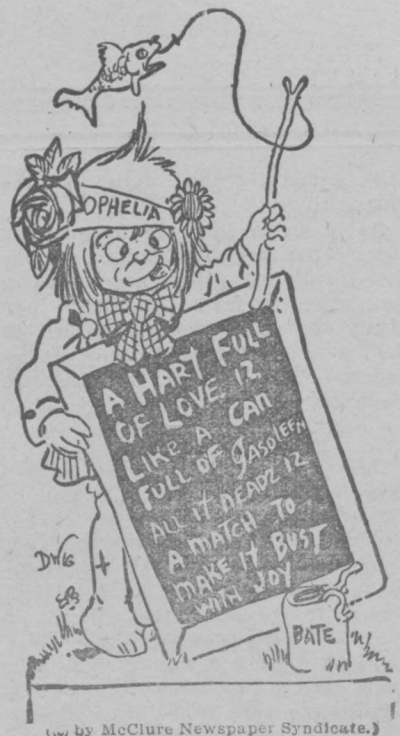 OPHELIA
A HART FULL
OF LOVE IZ
LIKE A CAN
FULL OF GASOLEEN
ALL IT NEADZ IZ
A MATCH TO
MAKE IT BUST
WITH JOY
DWIG
BATE
by McClure Newspaper Syndicate.)